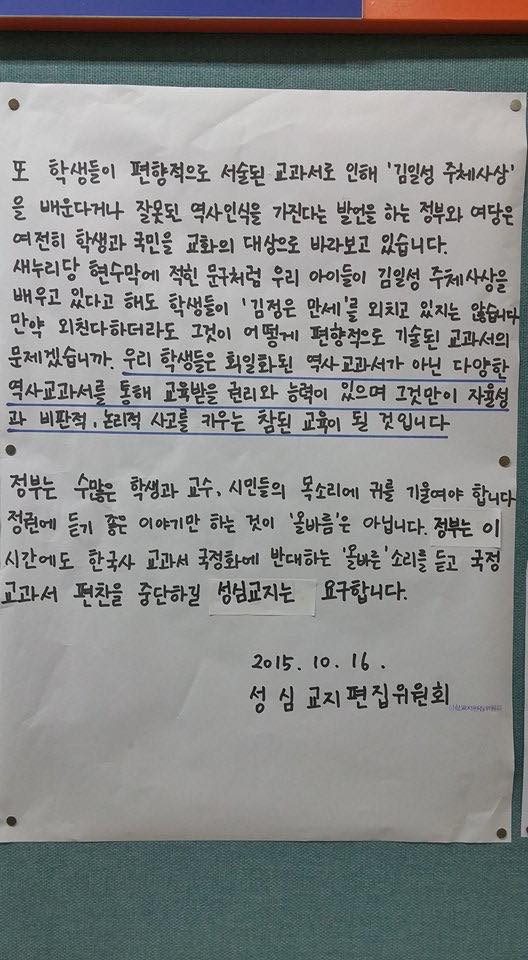 또 학생들이 편향적으로 서술된 교과서로 인해 '김일성 주체사상'
을 배운다거나 잘못된 역사인식을 가진다는 발언을 하는 정부와 여당은
여전히 학생과 국민을 교화의 대상으로 바라보고 있습니다.
새누리당 현수막에 적힌 문구처럼 우리 아이들이 김일성 주체사상을
배우고 있다고 해도 학생들이 '김정은 만세'를 외치고 있지는 않습니다
만약 외친다하더라도 그것이 어떻게 편향적으로 기술된 교과서의
문제겠습니까. 우리 학생들은 획일화된 역사교과서가 아닌 다양한
역사교과서를 통해 교육받을 권리와 능력이 있으며 그것만이 자율성
과 비판적, 논리적 사고를 키우는 참된 교육이 될 것입니다
정부는 수많은 학생과 교수, 시민들의 목소리에 귀를 기울여야 합니다
정권에 듣기 좋은 이야기만 하는 것이 '올바름'은 아닙니다. 정부는 이
시간에도 한국사 교과서 국정화에 반대하는 '올바른' 소리를 듣고 국정
교과서 편찬을 중단하길 성심교지는 요구합니다.
2015. 10. 16.
성심 교지편집위원회